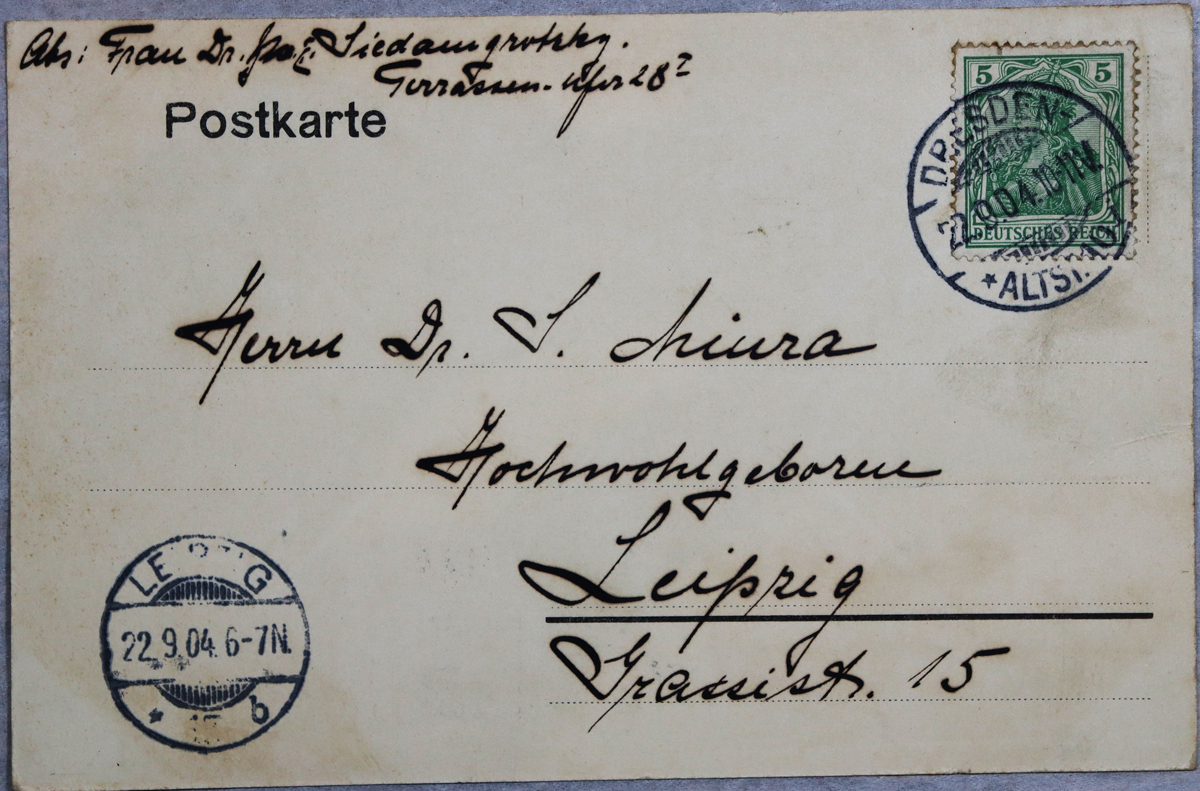 Abs: Frau Dr. Siedamgrotzky.
Terrassen-ufer 28 I
Postkarte
5 5
DEUTSCHES REICH
DRESDEN-
22.9.04.10-11V.
*ALTST.
Herrn Dr. S. Miura
Hochwohlgeboren
Leipzig
Grassistr. 15
LEIPZIG
22.9.04.6-7N.
* b